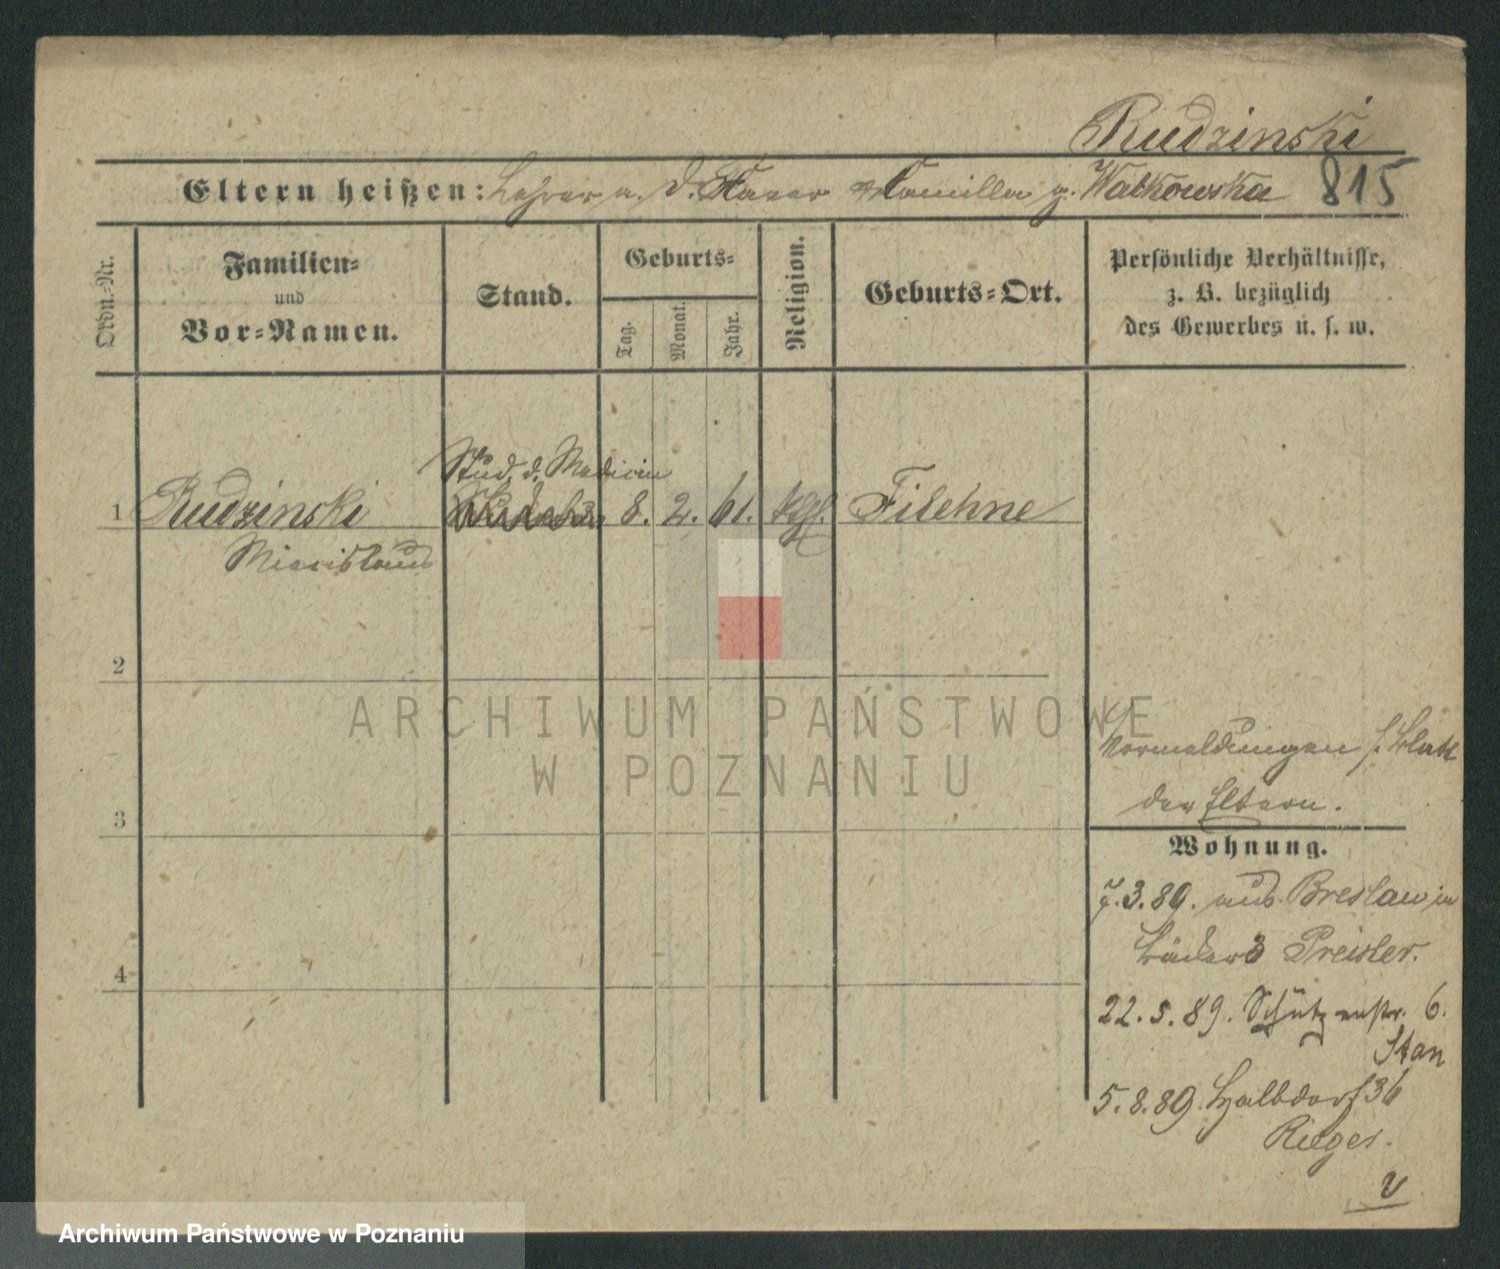 Rudzinski
Eltern heißen: Lehrer u. d. Xaver Camilla g. Walkowska 815
Ordn.-Nr.
Familien-
und
Vor-Namen.
Stand.
Geburts-
Tag.
Monat.
Jahr.
Religion.
Geburts-Ort.
Persönliche Verhältnisse,
z. B. bezüglich
des Gewerbes u. s. w.
Stud. d. Medicin
1 Rudzinski 8. 2. 61. kgl. Filehne
Miecislaus
2
3
4
Vormeldungen s. Blatt
der Eltern.
Wohnung.
7.3.89. aus Breslau in
Preisler.
22.5.89. Schützenstr. 6.
Stan
5.8.89. Halbdorf 36
Rieger.
v
ARCHIWUM PAŃSTWOWE
W POZNANIU
Archiwum Państwowe w Poznaniu